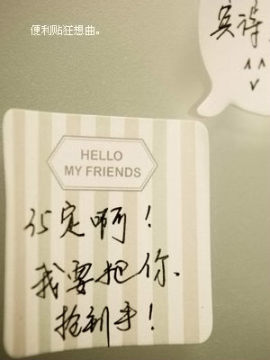 便利贴狂想曲。
HELLO
MY FRIENDS
定啊！
我要把你、
抢到手！